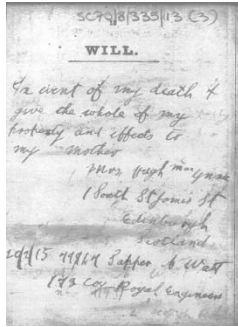 SC70/8/335/13 (3)
WILL.
In event of my death I
give the whole of my
property and effects to
my mother
Mrs Hugh
1 South St James St
Edinburgh
Scotland
Sapper A Watt
Coy Royal Engineers